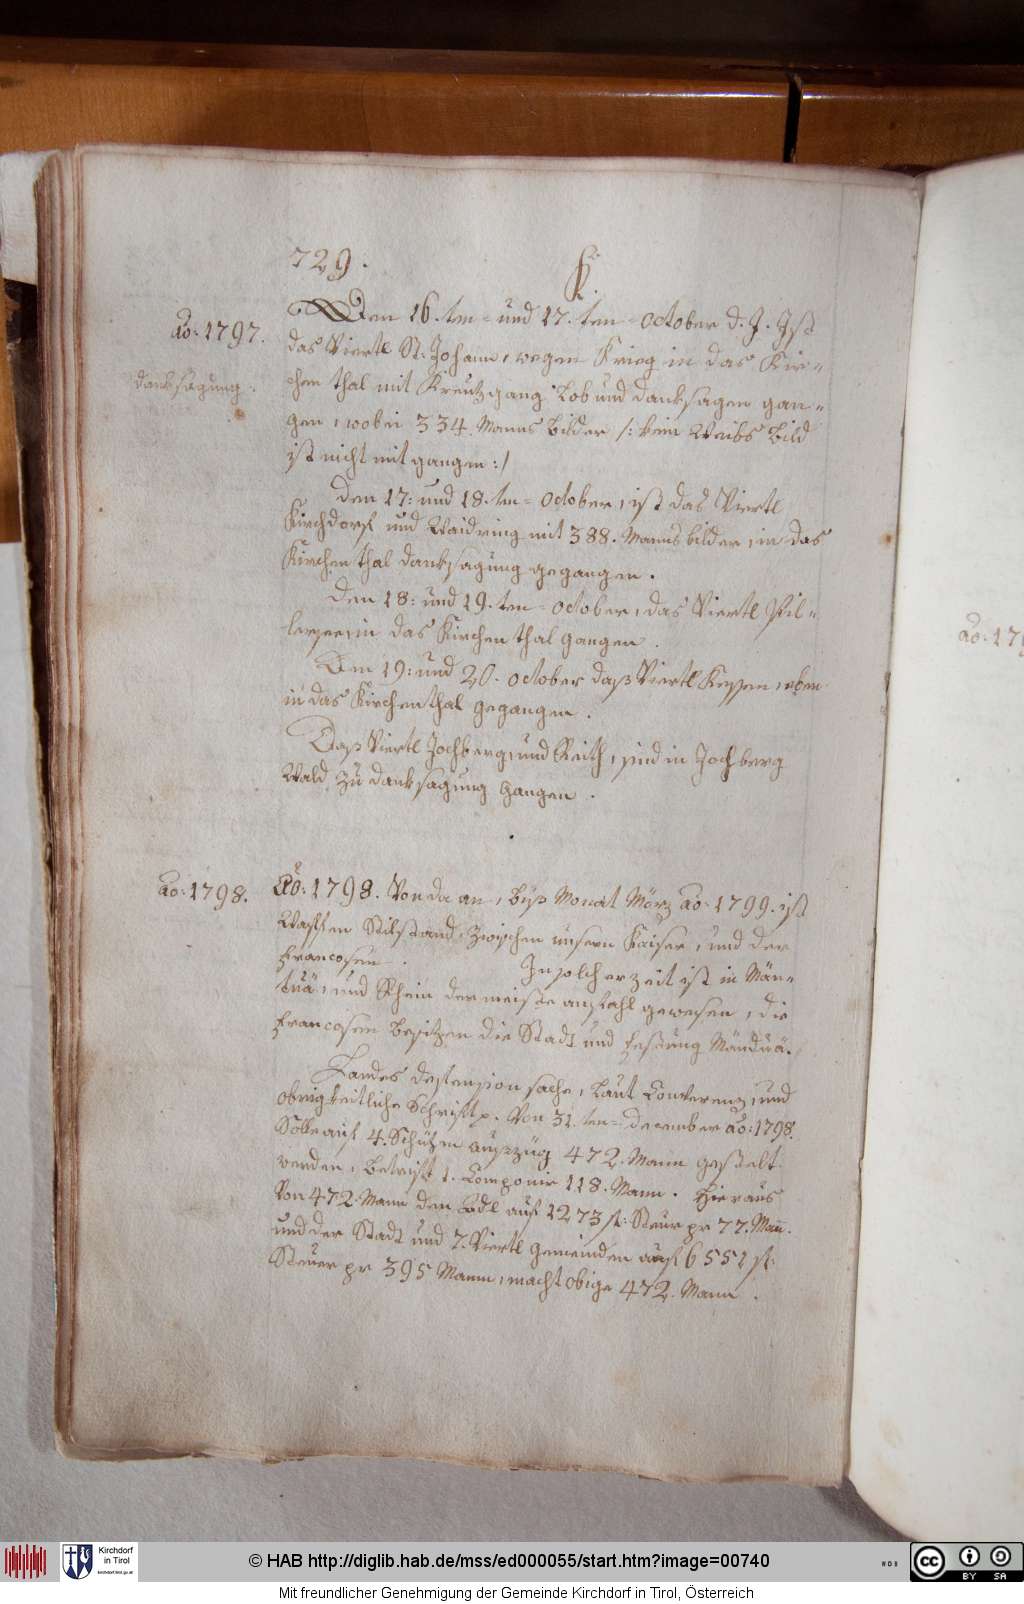 729.
K.
ao: 1797.
Danksagung.
Den 16.ten und 17.ten october d. J. Ist
das Viertl St: Johann, wegen Krieg in das Kir-
chen thal mit Kreutzgang Lob und danksagen gan-
gen, wobei 334. Manns bilder /: kein Weibs bild
ist nicht mit gangen :/
Den 17: und 18.ten october, ist das Viertl
Kirchdorf und Waidring mit 388. Mannsbilder, in das
Kirchen thal danksagung gegangen.
Den 18: und 19.ten october, das Viertl Pil-
lersee, in das Kirchen thal gangen.
Den 19: und 20. october daß Viertl Kessen, eben
in das Kirchen thal gegangen.
Daß Viertl Jochberg, und Reith, sind in Jochberg
Wald zu danksagung gangen.
ao: 1798.
Ao: 1798. Von da an, biß Monat Mörz ao: 1799. ist
Waffen Stilstand zwischen unsern Kaiser, und der
Francosen. In solcher zeit ist in Män-
tuä, und Rhein der meiste anzahl gewesen, die
Francosen besitzen die Stadt und Festung Mänduä.
Landes defension sache, laut Converenz, und
obrigkeitliche Schrift Von 31.ten december ao: 1798.
Solle auf 4. Schützen auszüg 472. Mann gestelt
werden, betrift 1. Componie 118. Mann. Hieraus
Von 472. Mann den Adl auf 1273 f: Steur pr 77. Man.
und der Stadt und 7. Viertl gemeinden auf 6551 f:
Steuer pr 395 Mann, macht obige 472. Mann.
ao: 179
Kirchdorf
in Tirol
kirchdorf.tirol.gv.at
© HAB http://diglib.hab.de/mss/ed000055/start.htm?image=00740
WDB
cc BY SA
Mit freundlicher Genehmigung der Gemeinde Kirchdorf in Tirol, Österreich